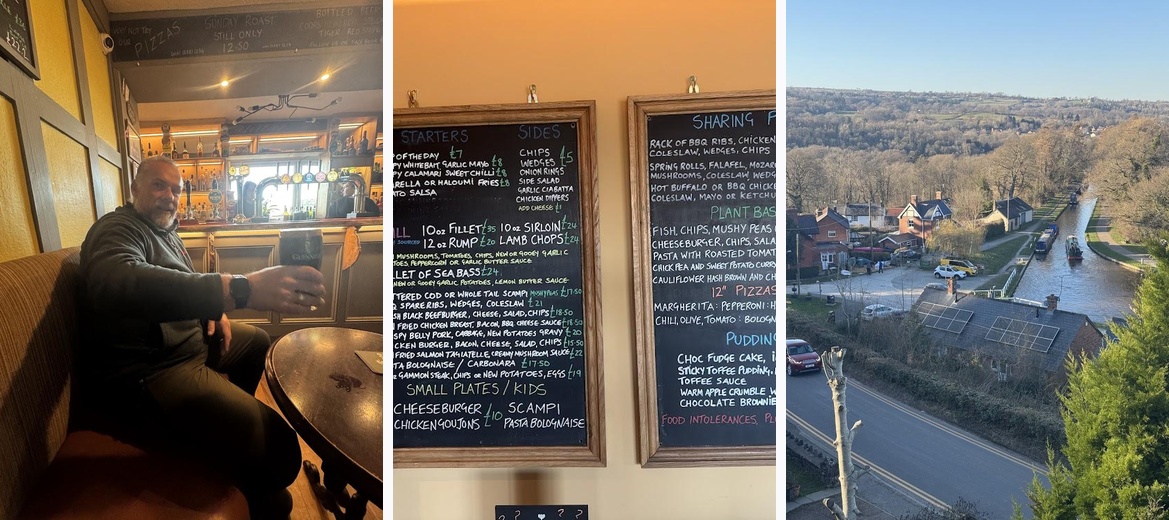 PIZZAS
SUNDAY ROAST
STILL ONLY
12.50
BOTTLED
GUINNESS
STARTERS
P OF THE DAY £7
PY WHITEBAIT GARLIC MAYO £8
PY CALAMARI SWEET CHILLI £8
ARELLA OR HALOUMI FRIES £8
TO SALSA
SIDES
CHIPS £5
WEDGES
ONION RINGS
SIDE SALAD
GARLIC CIABATTA
CHICKEN DIPPERS
ADD CHEESE £1
ILL 10oz FILLET £35 10oz SIRLOIN £24
12oz RUMP £20 LAMB CHOPS £24
MUSHROOMS, TOMATOES, CHIPS, NEW OR GOOEY GARLIC
TOES PEPPERCORN OR GARLIC BUTTER SAUCE
LLET OF SEA BASS £24
NEW OR GOOEY GARLIC POTATOES, LEMON BUTTER SAUCE
TERED COD OR WHOLE TAIL SCAMPI MUSHY PEAS £17.50
Q SPARE RIBS, WEDGES, COLESLAW £21
SH BLACK BEEFBURGER, CHEESE, SALAD, CHIPS £18.50
FRIED CHICKEN BREAST, BACON, BBQ, CHEESE SAUCE £18.50
SPY BELLY PORK, CABBAGE, NEW POTATOES, GRAVY £20
CKEN BURGER, BACON, CHEESE, SALAD, CHIPS £15.50
FRIED SALMON TAGLIATELLE, CREAMY MUSHROOM SAUCE £22
TA BOLOGNAISE / CARBONARA £17.50
GAMMON STEAK, CHIPS OR NEW POTATOES, EGGS £19
SMALL PLATES / KIDS
CHEESEBURGER £10 SCAMPI
CHICKEN GOUJONS PASTA BOLOGNAISE
SHARING
RACK OF BBQ RIBS, CHICKEN
COLESLAW, WEDGES, CHIPS
SPRING ROLLS, FALAFEL, MOZAR
MUSHROOMS, COLESLAW, WEDG
HOT BUFFALO OR BBQ CHICKE
COLESLAW, MAYO OR KETCHU
PLANT BAS
FISH, CHIPS, MUSHY PEAS
CHEESEBURGER, CHIPS, SALA
PASTA WITH ROASTED TOMAT
CHICK PEA AND SWEET POTATO CURRY
CAULIFLOWER HASH BROWN AND CH
12" PIZZAS
MARGHERITA: PEPPERONI: H
CHILI, OLIVE, TOMATO: BOLOGN
PUDDIN
CHOC FUDGE CAKE,
STICKY TOFFEE PUDDING,
TOFFEE SAUCE
WARM APPLE CRUMBLE
CHOCOLATE BROWNIE
FOOD INTOLERANCES,
? ? ♥ ? ?